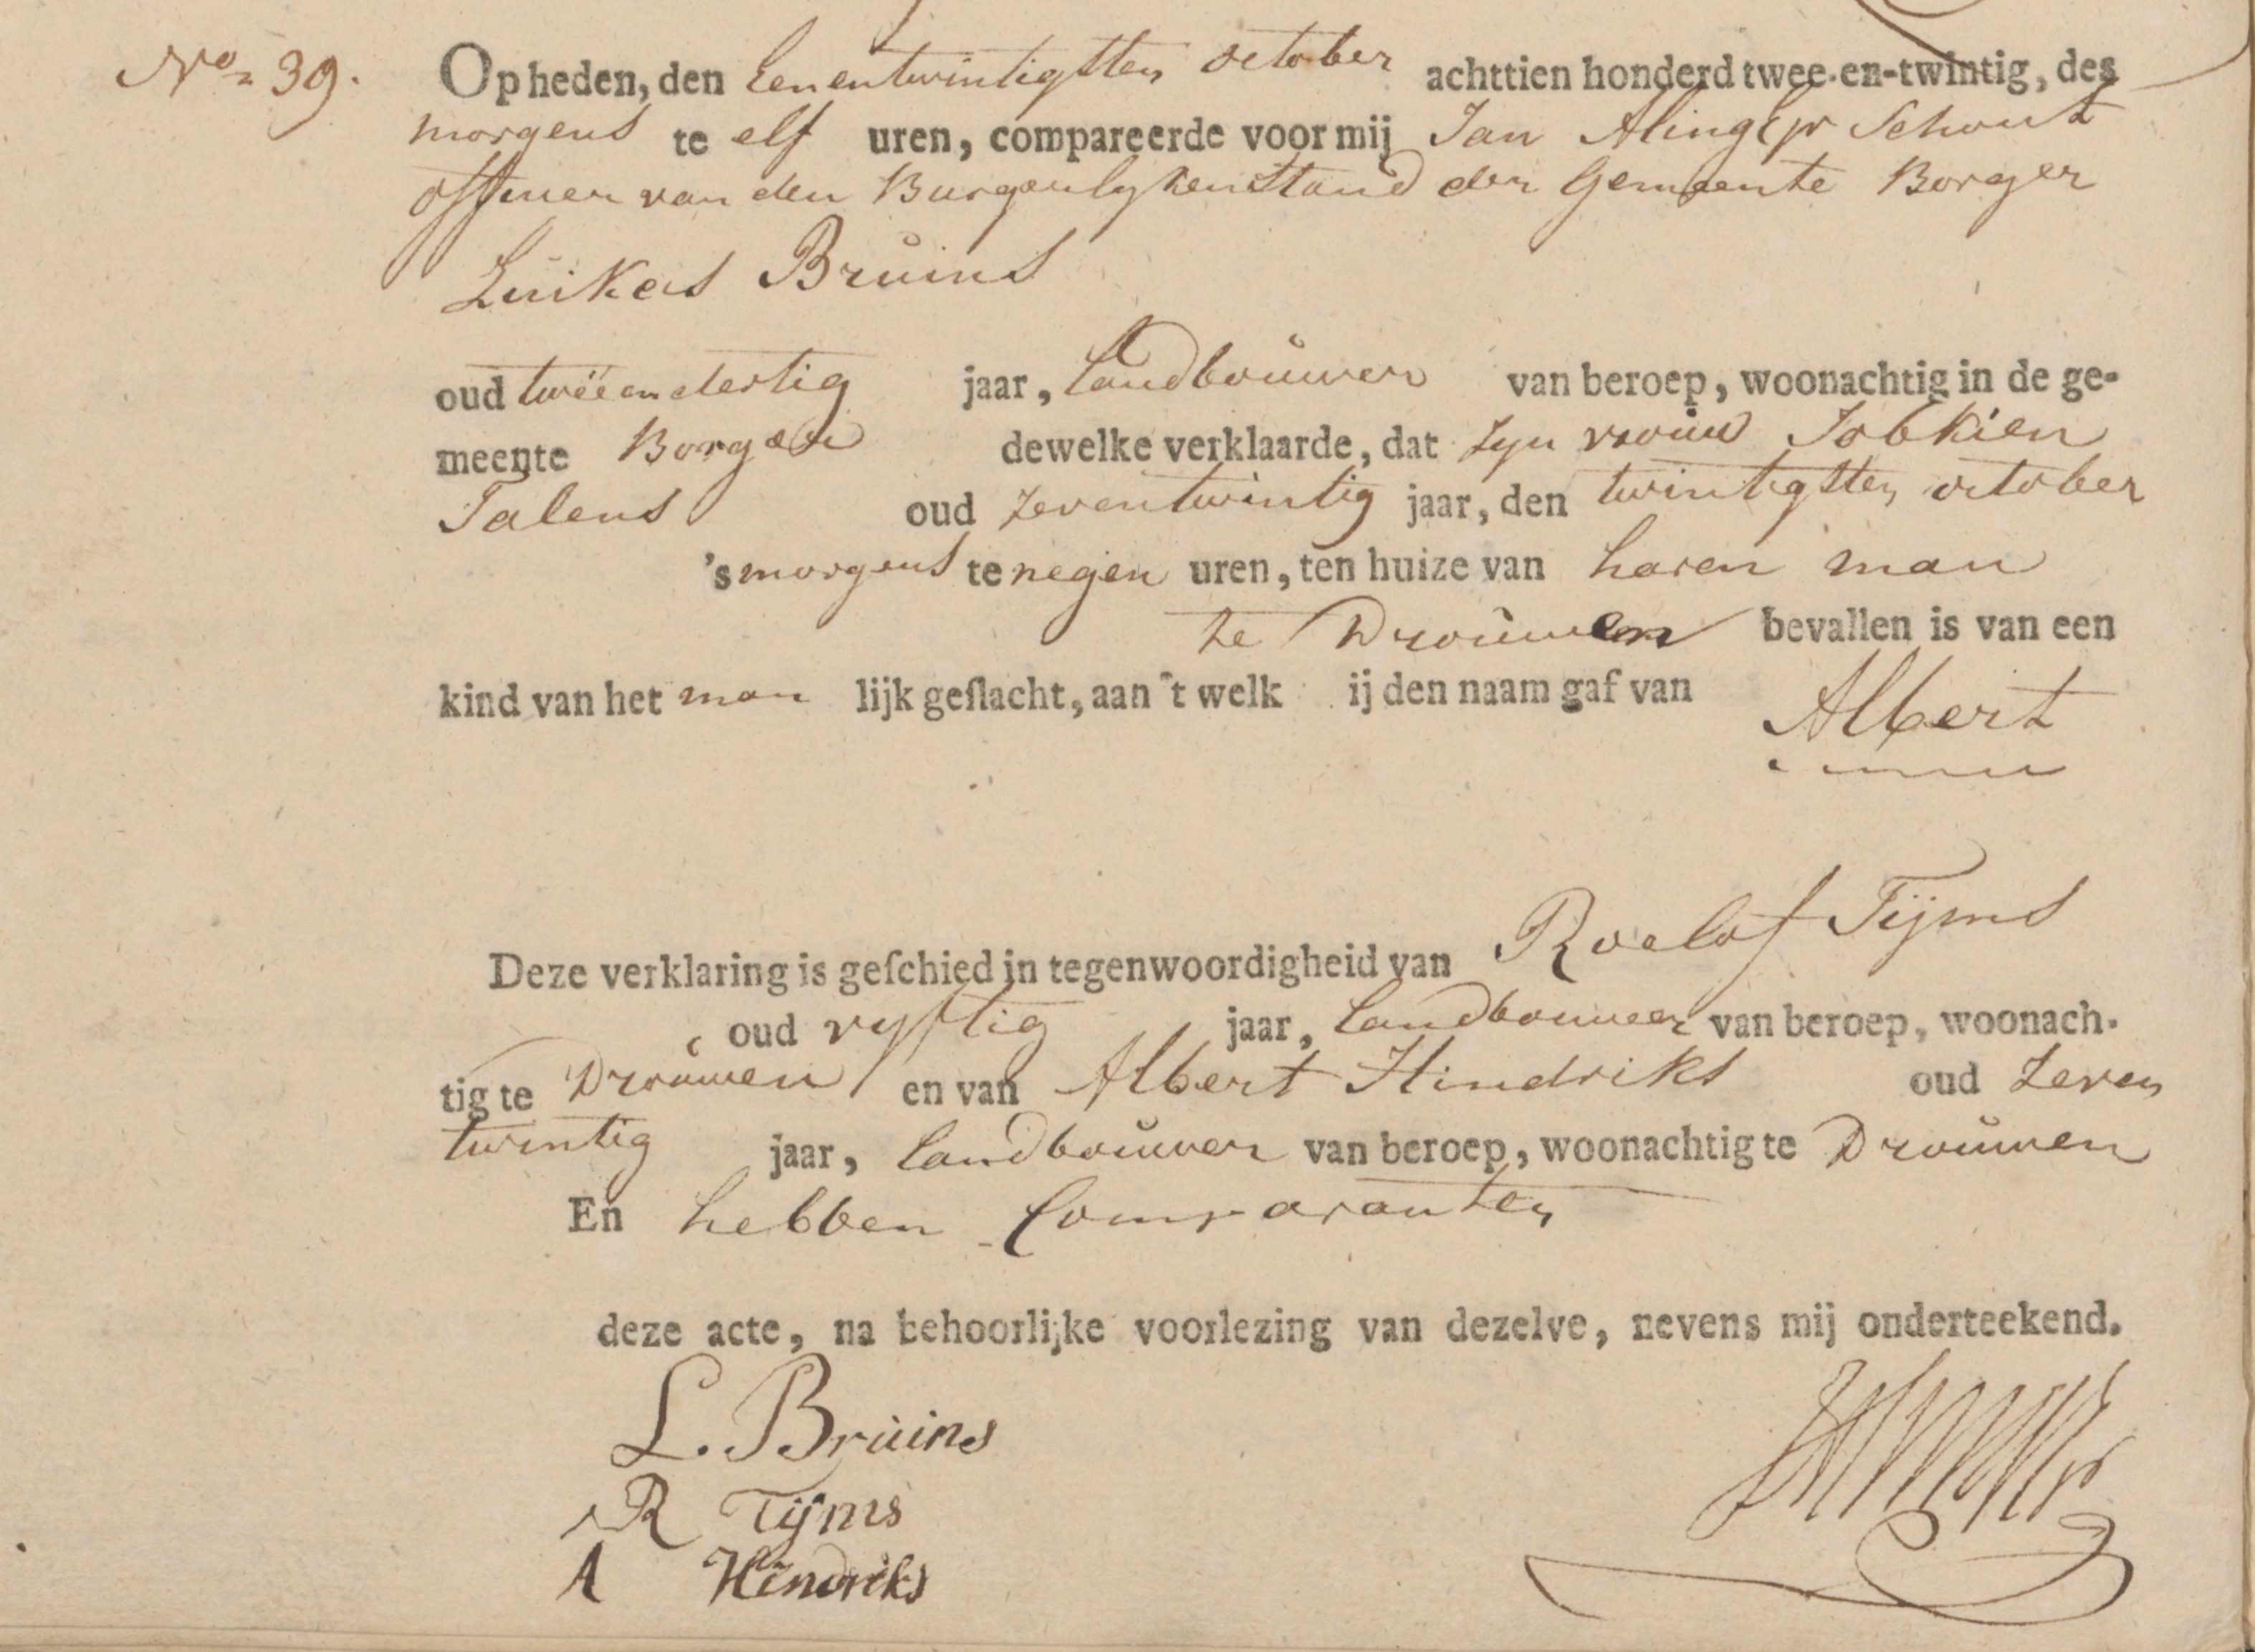 No= 39.
Op heden, den Eenentwintigsten october achttien honderd twee-en-twintig, des
morgens te elf uren, compareerde voor mij Jan Alingh Schout
officier van den Burgerlyken Stand der Gemeente Borger
Luikas Bruins
oud tweeendertig jaar, Landbouwer van beroep, woonachtig in de ge-
meente Borger dewelke verklaarde, dat zyn vrouw Jobkien
Talens oud zeventwintig jaar, den twintigsten october
's morgens te negen uren, ten huize van haren man
te Drouwen bevallen is van een
kind van het man lijk geslacht, aan 't welk ij den naam gaf van
Albert
Deze verklaring is geschied in tegenwoordigheid van Roelof Tijms
oud vyftig jaar, Landbouwer van beroep, woonach-
tig te Drouwen en van Albert Hindriks oud zeven
twintig jaar, Landbouwer van beroep, woonachtig te Drouwen
En hebben Comparanten
deze acte, na behoorlijke voorlezing van dezelve, nevens mij onderteekend.
L. Bruins
R Tijms
A Hindriks